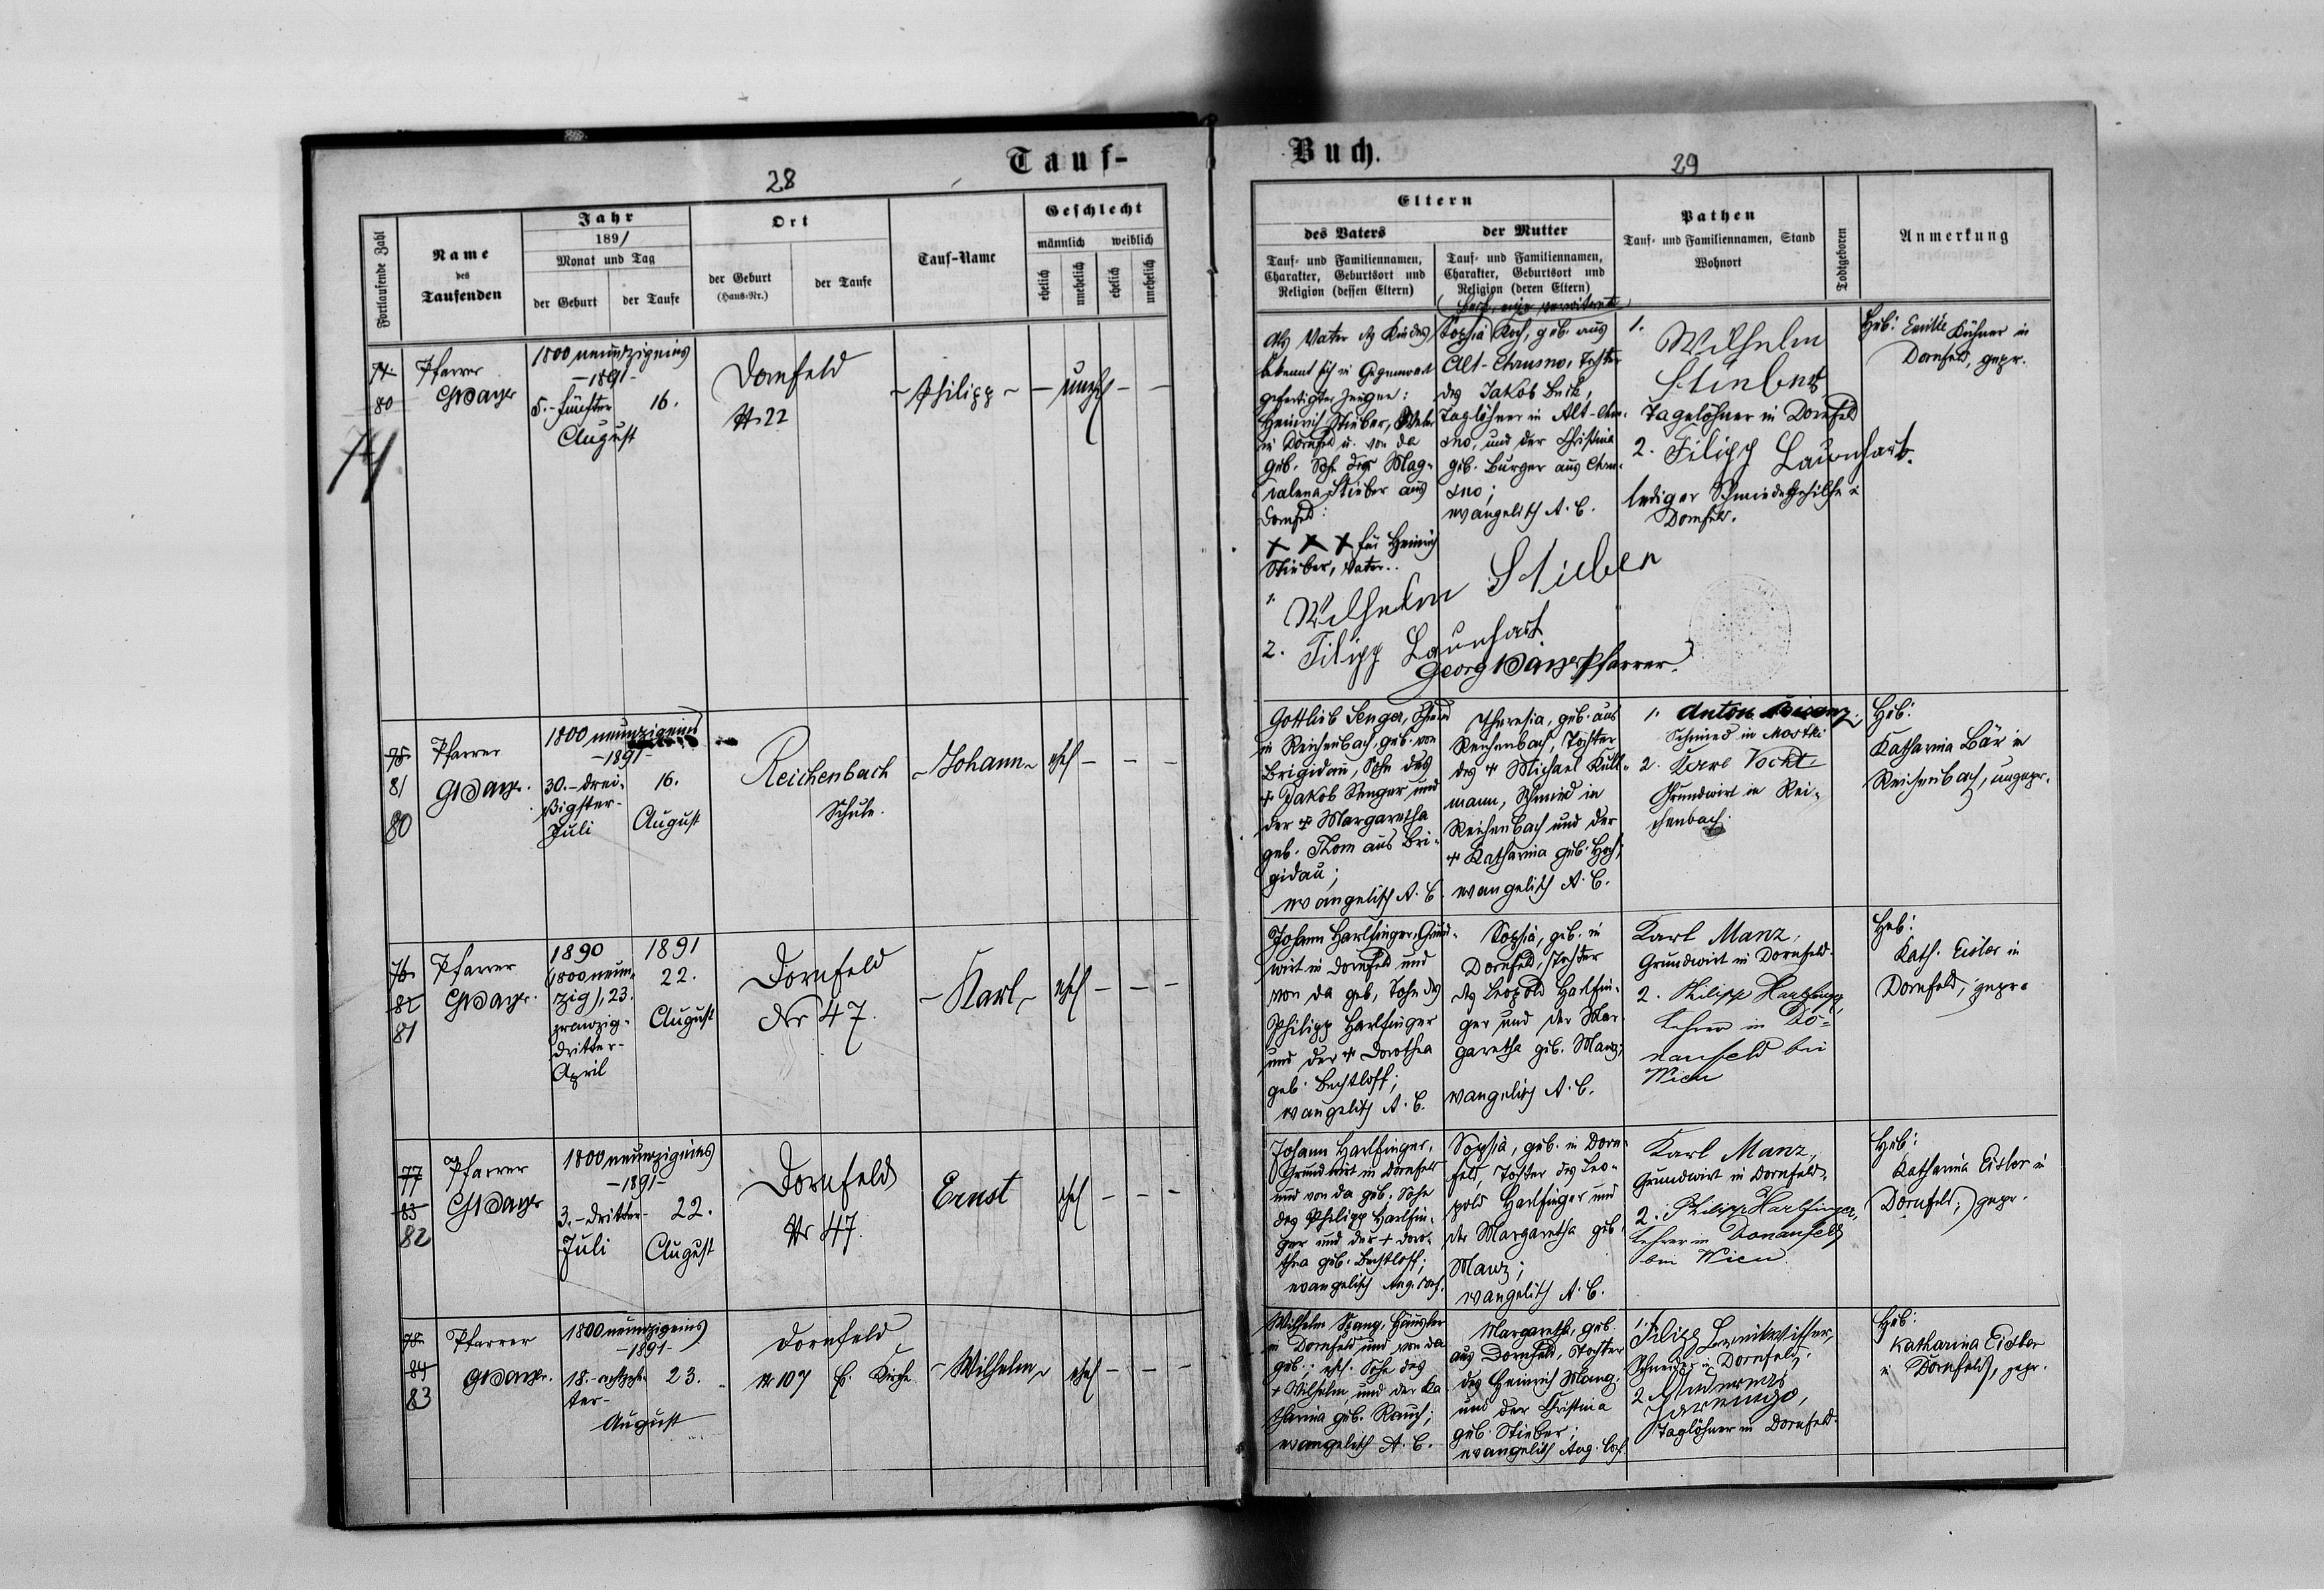 Tauf-
28
Fortlaufende Zahl
Name
des
Taufenden
Jahr
1891
Monat und Tag
der Geburt
der Taufe
Ort
der Geburt
(Haus-Nr.)
der Taufe
Tauf-Name
Geschlecht
männlich
weiblich
ehelich
unehelich
ehelich
unehelich
74
80
74
Pfarrer
1800 neunzigeins
-1891-
5.-fünfter
August
16.
Dornfeld
Nr 22
- Philipp -
- unehel - -
78
81
80
Pfarrer
1800 neunzigeins
-1891-
30.-drei-
ßigster-
Juli
16.
August
Reichenbach
Schule.
- Johann -
ehel - - -
76
82
81
Pfarrer
1890
(1800 neun-
zig), 23.
zwanzig-
dritter-
April
1891
22.
August
Dornfeld
Nr 47.
- Karl -
ehel - - -
77
83
82
Pfarrer
1800 neunzigeins
-1891-
3.-dritter-
Juli
22.
August
Dornfeld
Nr 47.
Ernst
ehel - - -
78
84
83
Pfarrer
1800 neunzigeins
-1891-
18.-achtzehn-
ter-
August
23.
Dornfeld
Nr 107
Kirche
- Wilhelm -
ehel - - -
Buch.
29
Eltern
des Vaters
Tauf- und Familiennamen,
Charakter, Geburtsort und
Religion (dessen Eltern)
der Mutter
Tauf- und Familiennamen,
Charakter, Geburtsort und
Religion (deren Eltern)
Pathen
Tauf- und Familiennamen, Stand
Wohnort
Todtgeboren
Anmerkung
Als Vater des Kindes
bekennt sich in Gegenwart
gefertigter Zeugen:
Heinrich Stieber,
in Dornfeld u. von da
geb. Sohn der Mag-
dalena Stieber aus
Dornfeld:
+ + + für Heinrich
Stieber, Vater.
1. Wilhelm Stieber
2. Filipp Launhart
Pfarrer.
Sophia Koch, geb. aus
Alt-Chrusno, Tochter
des Jakob Beck,
Taglöhner in Alt-Chru-
sno, und der Christina
geb. Burger aus Chru-
sno;
evangelisch A. C.
1. Wilhelm
Stieber
Tagelöhner in Dornfeld
2. Filipp Launhart.
lediger Schmiedgehilfe in
Dornfeld.
Heb: Emilie Kühner in
Dornfeld, gepr.
Gottlieb Senger, Schmied
in Reichenbach, geb. von
Brigidau, Sohn des
+ Jakob Senger und
der + Margaretha
geb. Thom aus Bri-
gidau;
evangelisch A. C.
Theresia, geb. aus
Reichenbach, Tochter
des + Michael Kull-
mann, Schmied in
Reichenbach und der
+ Katharina geb. Hoch;
evangelisch A. C.
1. Anton Bisanz,
Schmied in Mostki
2. Karl Vocht
Grundwirt in Rei-
chenbach.
Heb:
Katharina Bär in
Reichenbach, ungepr.
Johann Harlfinger, Grund-
wirt in Dornfeld und
von da geb, Sohn des
Philipp Harlfinger
und der + Dorothea
geb. Bechtloff;
evangelisch A. C.
Sophia, geb. in
Dornfeld, Tochter
des Leopold Harlfin-
ger und der Mar-
garetha geb. Manz;
evangelisch A. C.
Karl Manz,
Grundwirt in Dornfeld.
2. Philipp Harlfinger,
Lehrer in Do-
naufeld bei
Wien
Heb:
Kath. Eisler in
Dornfeld, gepr.
Johann Harlfinger,
Grundwirt in Dornfeld
und von da geb. Sohn
des Philipp Harlfin-
ger und der + Doro-
thea geb. Bechtloff;
evangelisch Aug. Conf.
Sophia, geb. in Dorn-
feld, Tochter des Leo-
pold Harlfinger und
der Margaretha geb.
Manz;
evangelisch A. C.
Karl Manz,
Grundwirt in Dornfeld.
2. Philipp Harlfinger,
Lehrer in Donaufeld
bei Wien.
Heb:
Katharina Eisler in
Dornfeld; gepr.
Wilhelm Häusler
in Dornfeld und von da
geb.; ehel. Sohn des
+ Wilhelm, und der Ka-
tharina geb. Rauch;
evangelisch A. C.
Margaretha, geb.
aus Dornfeld, Tochter
des Heinrich Manz
und der Christina
geb. Stieber;
evangelisch Aug. Conf.
1. Filipp
Schneider in Dornfeld.
2. Andreas
Taglöhner in Dornfeld.
Heb:
Katharina Eisler
in Dornfeld, gepr.